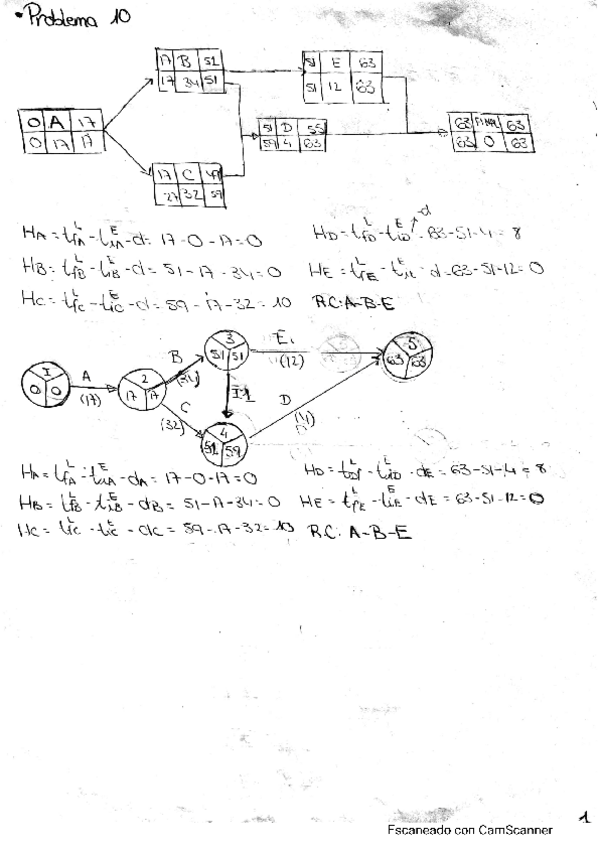 • Problema 10
17 B 51
17 34 51
51 E 63
51 12 63
0 A 17
0 17 17
51 D 55
59 4 63
63 FINAL 63
63 0 63
17 C 49
27 32 59
HA = tfA^L - tiA^E - d = 17-0-17=0
HD = tfD^L - tiD^E - d = 63-51-4 = 8
HB = tfB^L - tiB^E - d = 51-17-34=0
HE = tfE^L - tiE^E - d = 63-51-12=0
HC = tfC^L - tiC^E - d = 59-17-32=10
R.C: A-B-E
1
0 0
A
(17)
2
17 17
B
(34)
C
(32)
3
51 51
4
51 59
E
(12)
D
(4)
5
63 63
HA = tfA^L - tiA^E - dA = 17-0-17=0
HD = tfD^L - tiD^E - dE = 63-51-4 = 8
HB = tfB^L - tiB^E - dB = 51-17-34=0
HE = tfE^L - tiE^E - dE = 63-51-12=0
HC = tfC^L - tiC^E - dC = 59-17-32=10
R.C: A-B-E
1
Escaneado con CamScanner